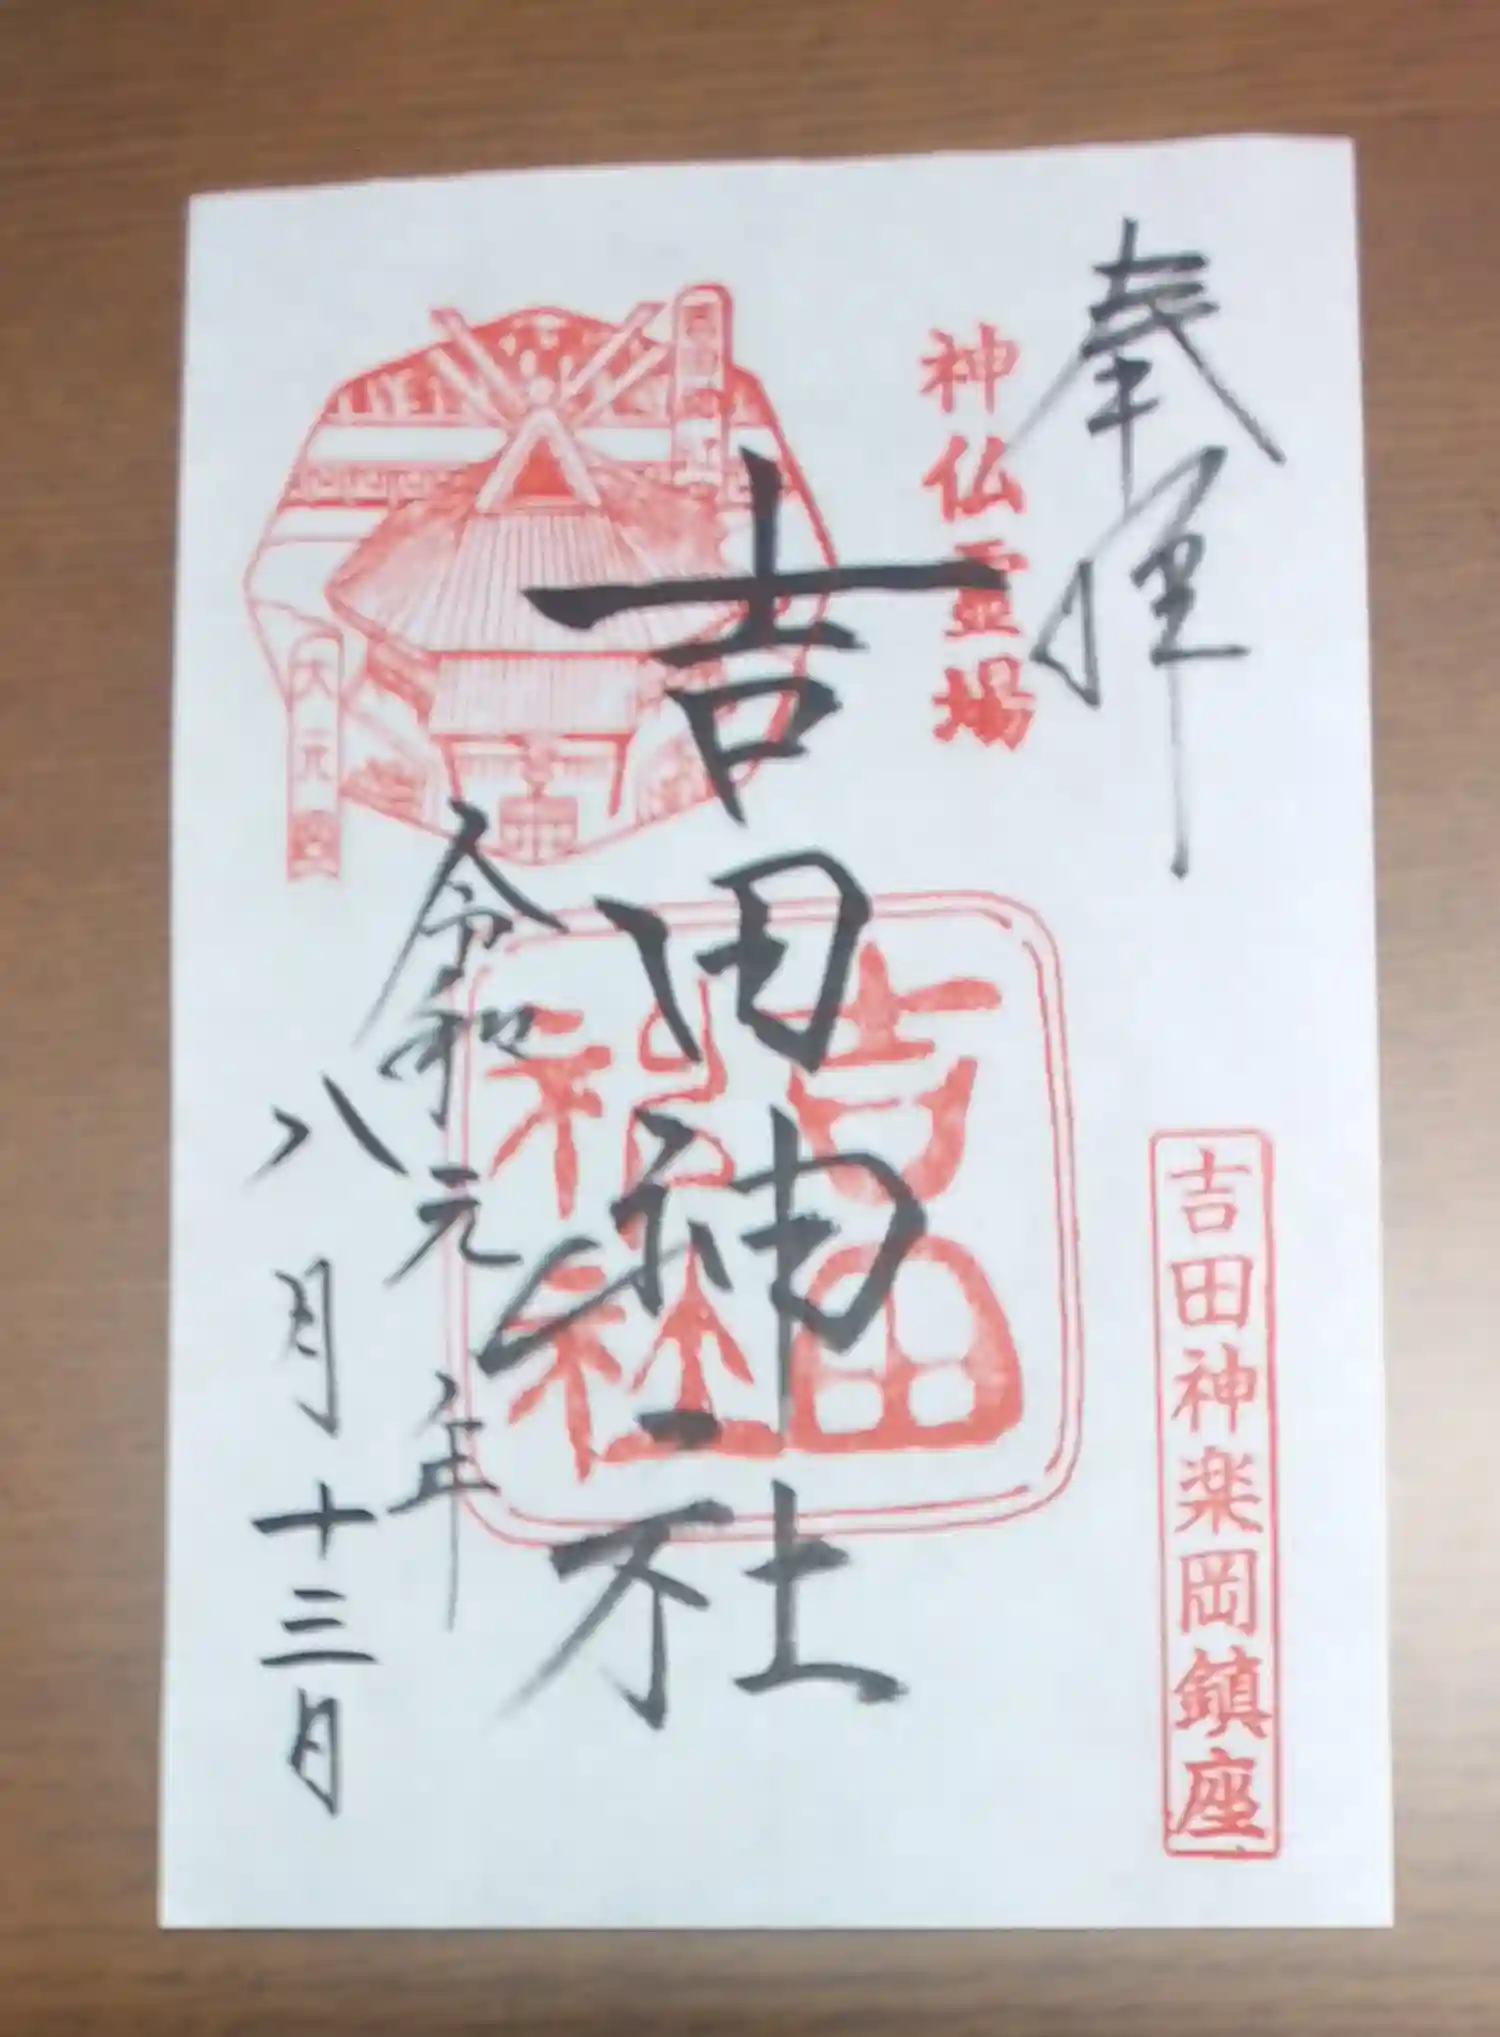 奉拝
神仏霊場
吉田神楽岡鎮座
吉田神社
吉田
神社
大元宮
令和元年
八月十三日